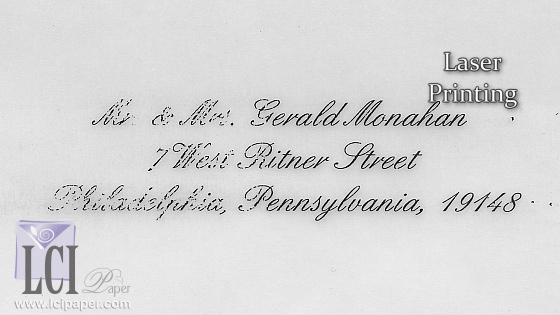 Laser
Printing
Mr. & Mrs. Gerald Monahan
7 West Ritner Street
Philadelphia, Pennsylvania, 19148
LCI Paper
www.lcipaper.com